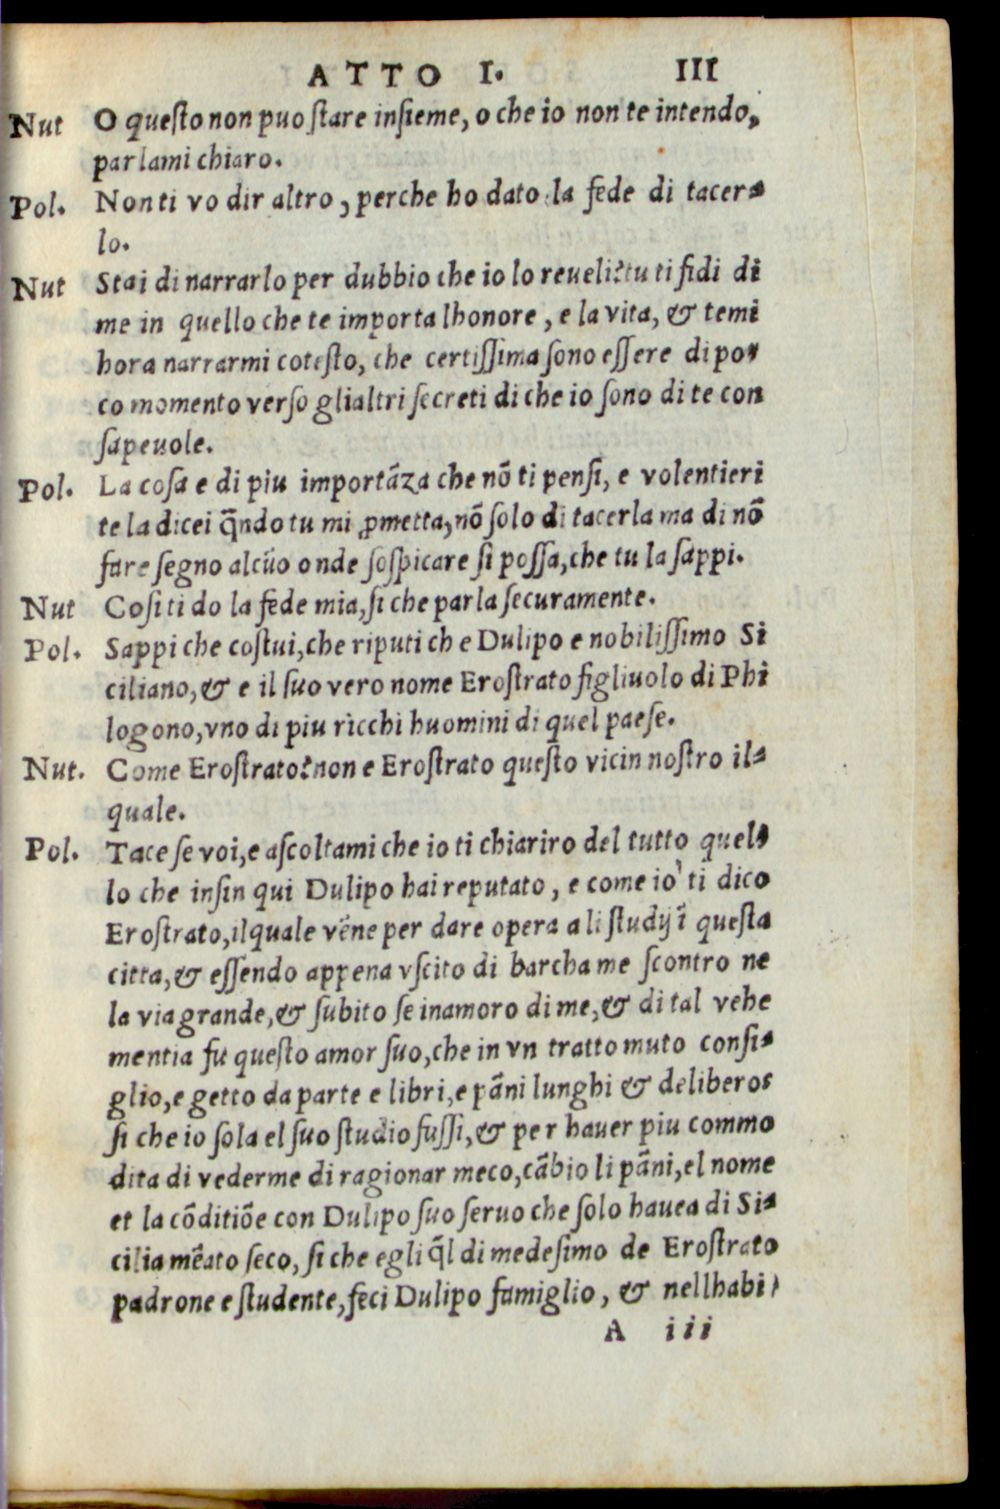 ATTO I. III
Nut O queſto non puo ſtare inſieme, o che io non te intendo,
parlami chiaro.
Pol. Non ti vo dir altro, perche ho dato la fede di tacer-
lo.
Nut Stai di narrarlo per dubbio che io lo reueli? tu ti fidi di
me in quello che te importa lhonore, e la vita, & temi
hora narrarmi coteſto, che certiſſima ſono eſſere di po-
co momento verſo glialtri ſecreti di che io ſono di te con
ſapeuole.
Pol. La coſa e di piu importãza che nõ ti penſi, e volentieri
te la dicei q̃ndo tu mi ꝓmetta, nõ ſolo di tacerla ma di nõ
fare ſegno alcũo onde ſoſpicare ſi poſſa, che tu la ſappi.
Nut Coſi ti do la fede mia, ſi che parla ſecuramente.
Pol. Sappi che coſtui, che riputi che Dulipo e nobiliſſimo Si
ciliano, & e il ſuo vero nome Eroſtrato figliuolo di Phi
logono, vno di piu ricchi huomini di quel paeſe.
Nut. Come Eroſtrato? non e Eroſtrato queſto vicin noſtro il-
quale.
Pol. Tace ſe voi, e aſcoltami che io ti chiariro del tutto quel-
lo che inſin qui Dulipo hai reputato, e come io ti dico
Eroſtrato, ilquale vẽne per dare opera a li ſtudij ĩ queſta
citta, & eſſendo appena vſcito di barcha me ſcontro ne
la via grande, & ſubito ſe inamoro di me, & di tal vehe
mentia fu queſto amor ſuo, che in vn tratto muto conſi-
glio, e getto da parte e libri, e pãni lunghi & deliberoſ
ſi che io ſola el ſuo ſtudio fuſſi, & per hauer piu commo
dita di vederme di ragionar meco, cãbio li pãni, el nome
et la cõditiõe con Dulipo ſuo ſeruo che ſolo hauea di Si-
cilia mẽato ſeco, ſi che egli q̃l di medeſimo de Eroſtrato
padrone e ſtudente, feci Dulipo famiglio, & nellhabi-
A iii